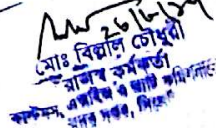 ২৬/৬/২৪
মোঃ বিল্লাল চৌধুরী
রাজস্ব কর্মকর্তা
কাস্টমস, এক্সাইজ ও ভ্যাট কমিশনারেট
সদর দপ্তর, সিলেট